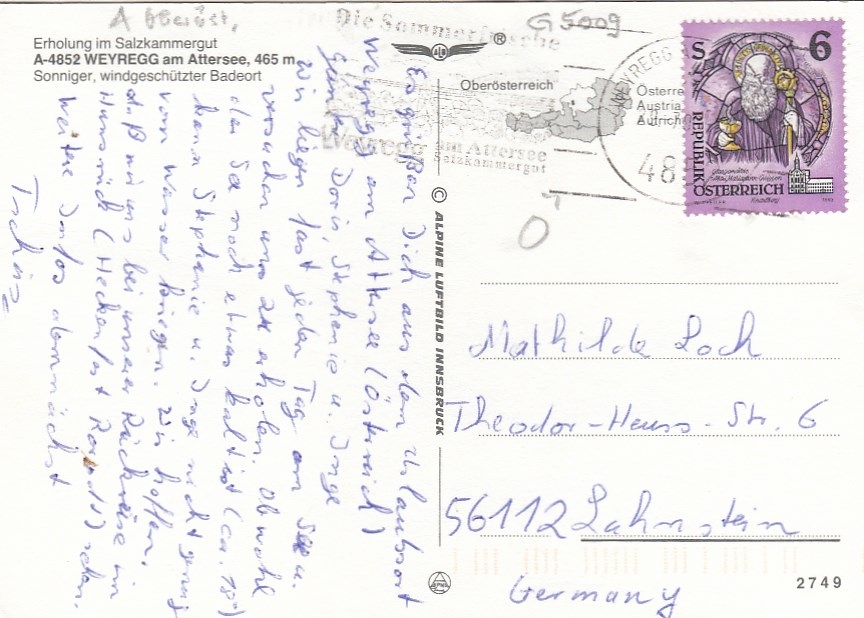 A Oberöst.
G5009
Erholung im Salzkammergut
A-4852 WEYREGG am Attersee, 465 m
Sonniger, windgeschützter Badeort
Die Sommerfrische
Weyregg am Attersee
Salzkammergut
®
Oberösterreich
Österre
Austria
Autrich
WEYREGG
48
S 6
REPUBLIK
ÖSTERREICH
Es grüßen Dich aus dem Urlaubsort
Weyregg am Attersee (Österreich)
Günter, Doris, Stephanie u. Inge
Wir liegen fast jeden Tag am See u.
versuchen uns zu erholen. Obwohl
der See noch etwas kalt ist (ca. 18°)
kann Stephanie u. Inge nicht genug
vom Wasser kriegen. Wir hoffen,
daß wir uns bei unserer Rückreise im
Hunsrück (Hecken ) sehen.
Weitere Infos demnächst
Tschüs
© ALPINE LUFTBILD INNSBRUCK
Mathilde Loch
Theodor-Heuss-Str. 6
56112 Lahnstein
Germany
2749